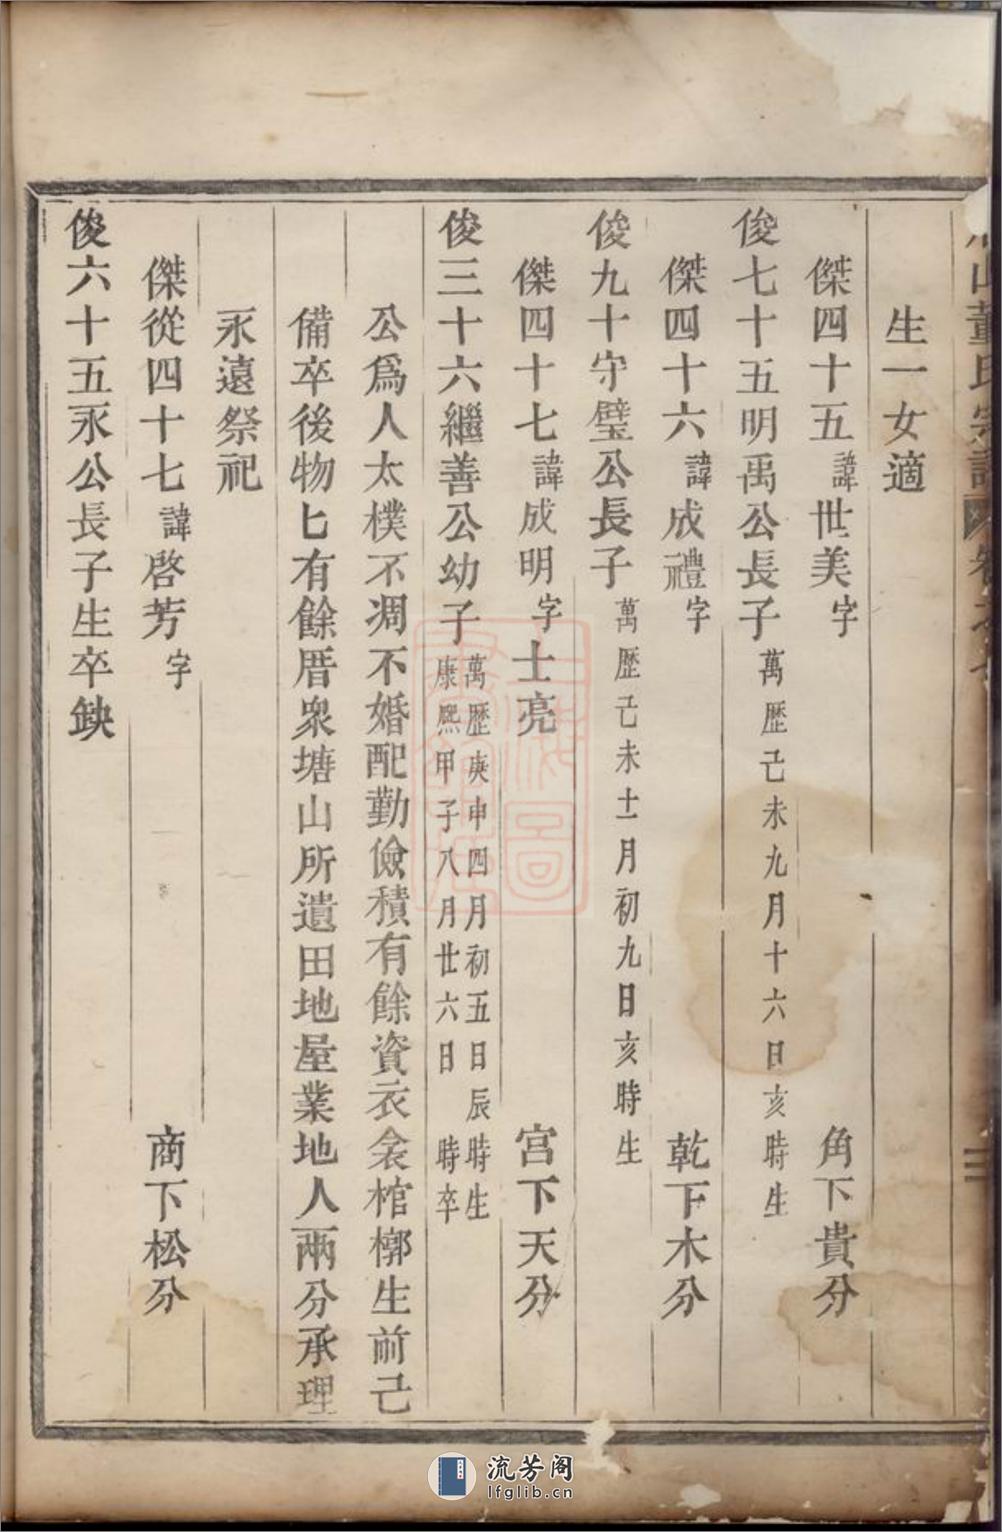 山董氏宗譜 卷之
生一女適
傑四十五諱世美字 角下貴分
俊七十五明禹公長子萬歷己未九月十六日亥時生
傑四十六諱成禮字 乾下木分
俊九十守璧公長子萬歷己未十一月初九日亥時生
傑四十七諱成明字士亮 宮下天分
俊三十六繼善公幼子萬歷庚申四月初五日辰時生
康熙甲子八月廿六日 時卒
公爲人太樸不凋不婚配勤儉積有餘資衣衾棺槨生前己
備卒後物匕有餘厝衆塘山所遺田地屋業地人兩分承理
永遠祭祀
傑從四十七諱啓芳字 商下松分
俊六十五永公長子生卒缺
流芳阁
lfglib.cn